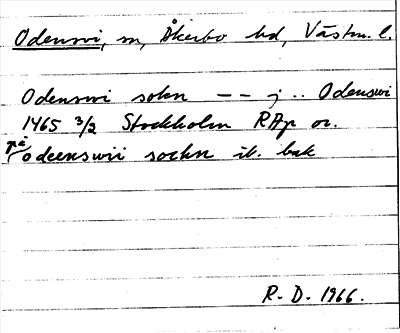 Odensvi, sn, Åkerbo hd, Västm. l.
Odenswi sokn -- j .. Odenswi
1465 3/2 Stockholm RAp or.
på odeenswii sochn ib. bak
R. D. 1966.